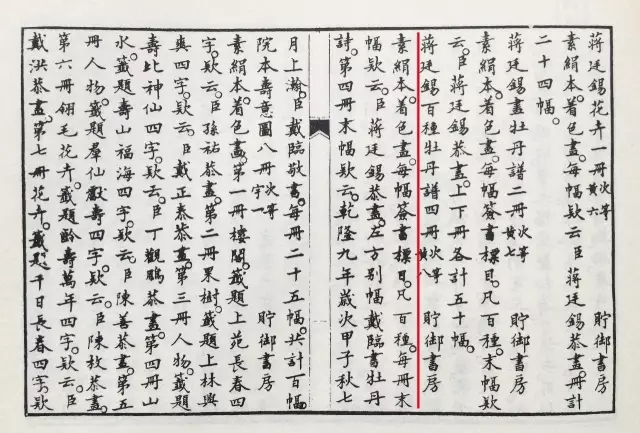 蔣廷錫花卉一冊次等黃六 貯御書房
素絹本着色畫每幅款云臣蔣廷錫恭畫冊計
二十四幅
蔣廷錫畫牡丹譜二冊次等黃七 貯御書房
素絹本着色畫每幅簽書標目凡百種末幅款
云臣蔣廷錫恭畫上下冊各計五十幅
蔣廷錫百種牡丹譜四冊次等黃八 貯御書房
素絹本着色畫每幅簽書標目凡百種每冊末
幅款云臣蔣廷錫恭畫左方別幅戴臨書牡丹
詩第四冊末幅款云乾隆九年歲次甲子秋七
月上瀚臣戴臨敬書每冊二十五幅共計百幅
院本壽意圖八冊次等宇一 貯御書房
素絹本着色畫第一冊樓閣籤題上苑長春四
字款云臣孫祜恭畫第二冊果樹籤題上林興
爽四字款云臣戴正泰恭畫第三冊人物籤題
壽比神仙四字款云臣丁觀鵬恭畫第四冊山
水籤題壽山福海四字款云臣陳善恭畫第五
冊人物籤題群仙獻壽四字款云臣陳枚恭畫
第六冊翎毛花卉籤題齡壽萬年四字款云臣
戴洪恭畫第七冊花卉籤題千日長春四字款